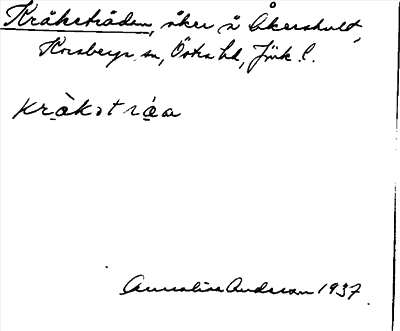 Kråketråden, åker å Åkershult,
Korsberga sn, Östra hd, Jönk. l.
kràkətráa
Annalisa Andersson 1937